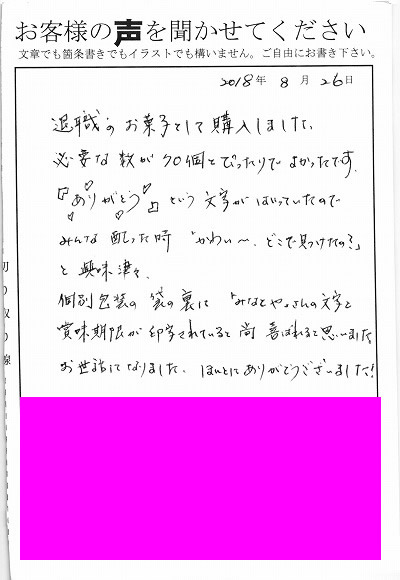 お客様の声を聞かせてください
文章でも箇条書きでもイラストでも構いません。ご自由にお書き下さい。
2018年 8月 26日
退職のお菓子として購入しました。
必要な数が70個とぴったりでよかったです。
『ありがとう』という文字がはいっていたので
みんな配った時「かわい〜、どこで見つけたの?」
と興味津々。
個別包装の袋の裏に「みなとや」さんの文字と
賞味期限が印字されていると尚喜ばれると思いました
お世話になりました。ほんとにありがとうございました!
切り取り線